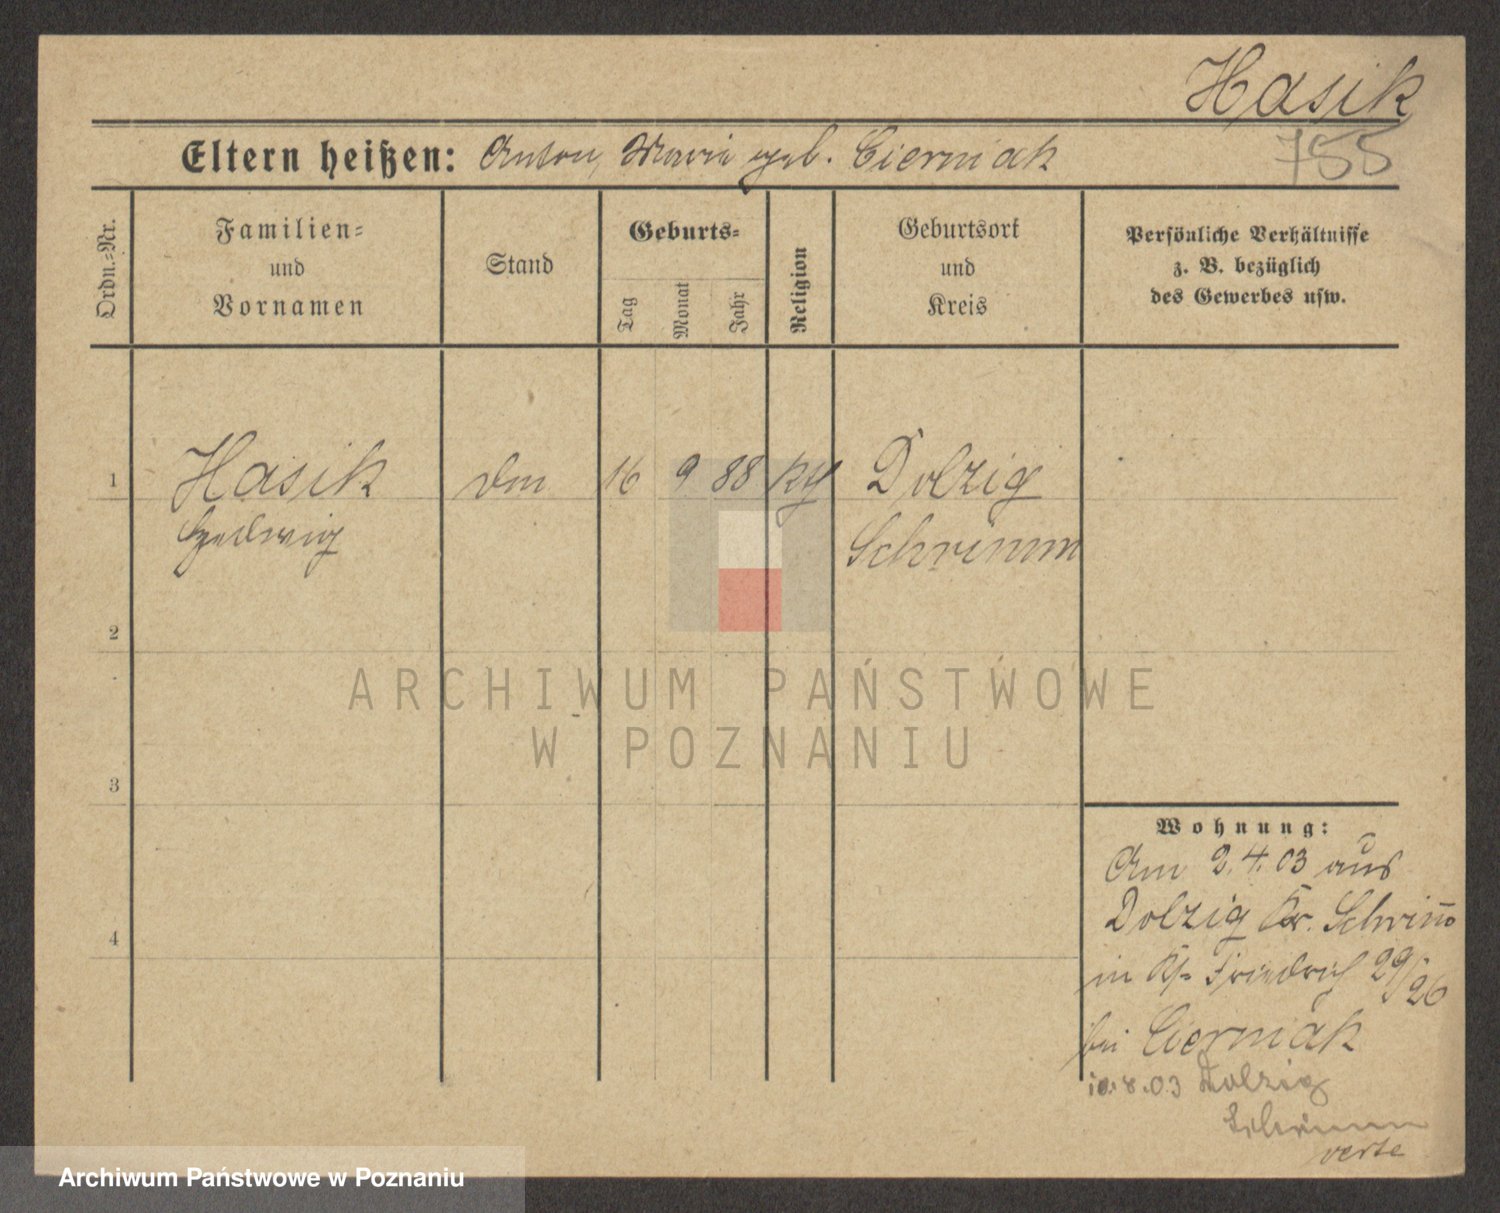 Hasik
755
Eltern heißen: Anton, Maria geb. Cierniak
Ordn.=Nr.
Familien=
und
Vornamen
Stand
Geburts=
Tag
Monat
Jahr
Religion
Geburtsort
und
Kreis
Persönliche Verhältnisse
z. B. bezüglich
des Gewerbes usw.
1
Hasik
Hedwig
16
9
88
Dolzig
Schrimm
2
3
4
ARCHIWUM PAŃSTWOWE
W POZNANIU
Wohnung:
Am 2.4.03 aus
Dolzig Kr. Schrimm
in Friedrich 29/26
bei Cierniak
10.8.03 Dolzig
Schrimm
verte
Archiwum Państwowe w Poznaniu